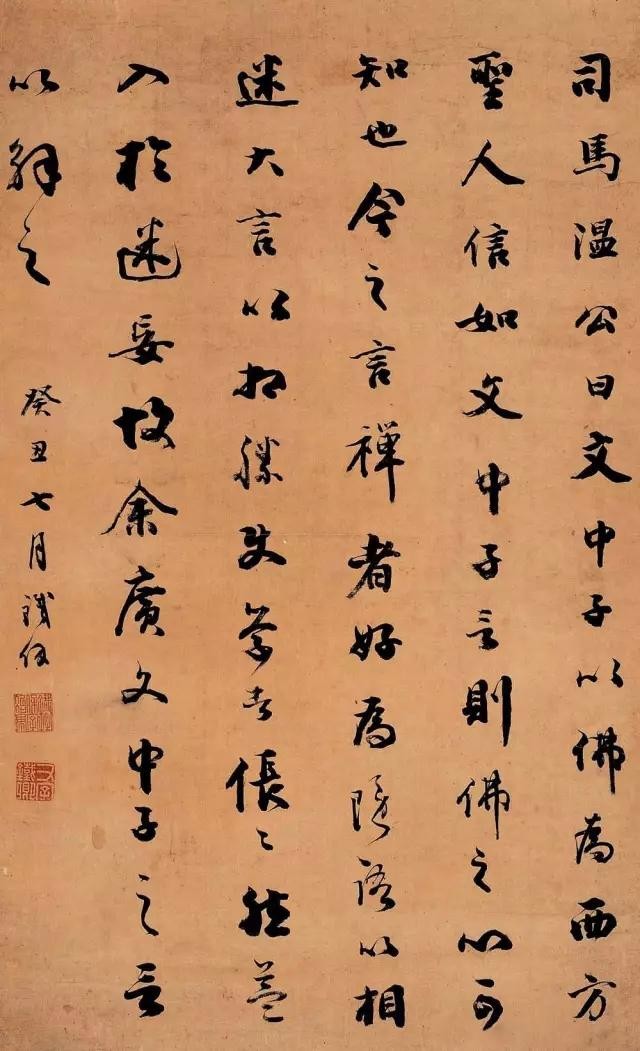 司馬溫公曰文中子以佛為西方
聖人信如文中子言則佛之心可
知也今之言禪者好為隱語以相
迷大言以相勝使學者倀〻然益
入於迷妄故余廣文中子之言
以解之
癸丑七月銕保